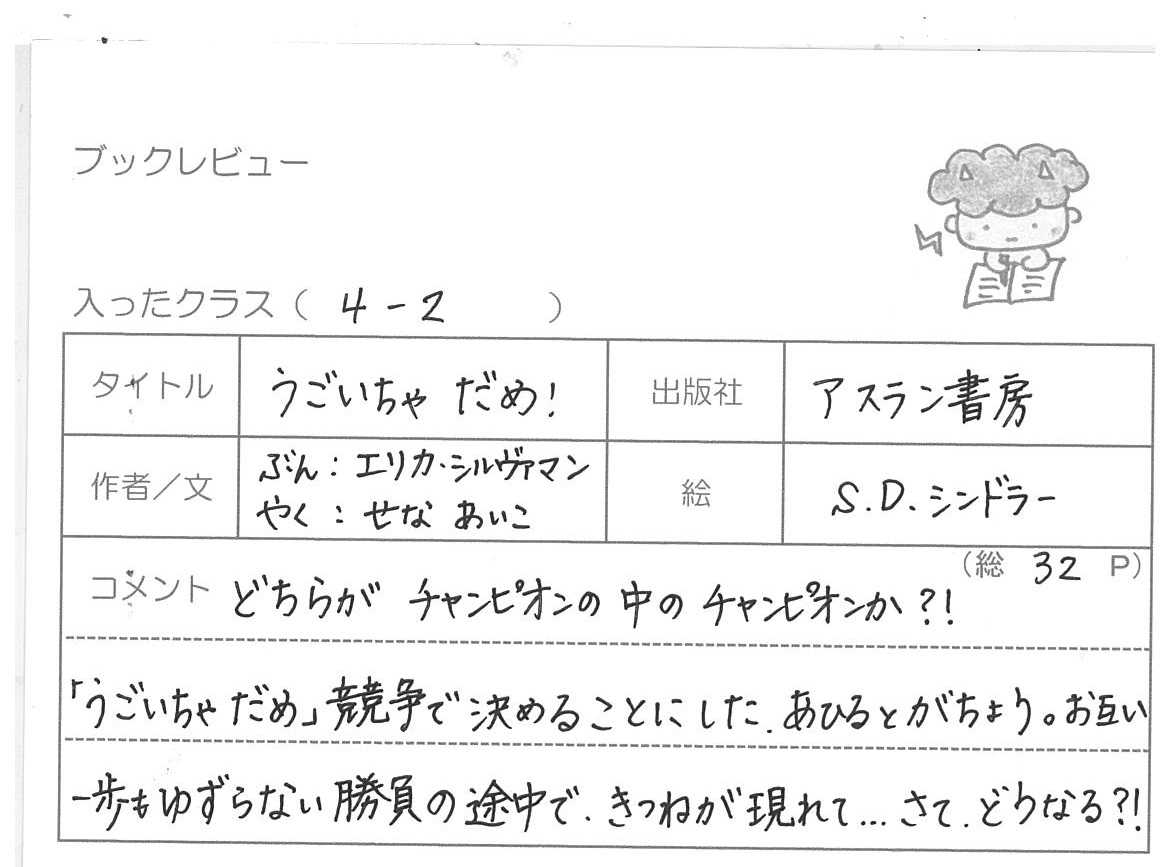 ブックレビュー
入ったクラス（ 4-2 ）
タイトル うごいちゃ だめ! 出版社 アスラン書房
作者／文 ぶん：エリカ・シルヴァマン
やく：せな あいこ
絵 S.D.シンドラー
（総 32 P）
コメント どちらが チャンピオンの 中の チャンピオンか?!
「うごいちゃ だめ」競争で決めることにした、あひるとがちょう。お互い
一歩もゆずらない勝負の途中で、きつねが現れて…さて、どうなる?!